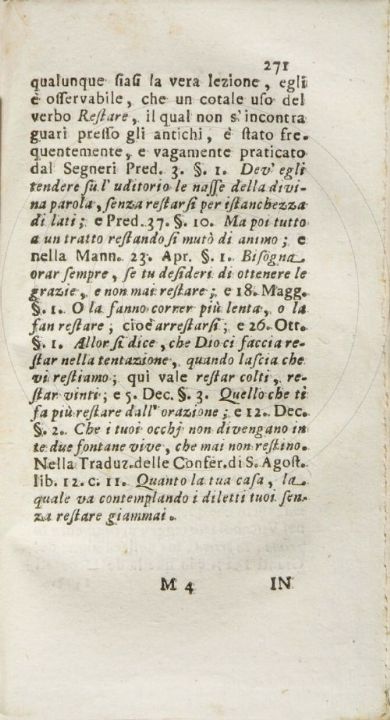 271
qualunque siasi la vera lezione, egli
è osservabile, che un cotale uso del
verbo Restare, il qual non s'incontra
guari presso gli antichi, è stato fre-
quentemente, e vagamente praticato
dal Segneri Pred. 3. §. 1. Dev' egli
tendere su l' uditorio le nasse della divi-
na parola, senza restarsi per istanchezza
di lati; e Pred. 37. §. 10. Ma poi tutto
a un tratto restandosi mutò di animo; e
nella Mann. 23. Apr. §. 1. Bisogna
orar sempre, se tu desideri di ottenere le
grazie, e non mai restare; e 18. Magg.
§. 1. O la fanno correr più lenta, o la
fan restare; cioè arrestarsi; e 26. Ott.
§. 1. Allor si dice, che Dio ci faccia re-
star nella tentazione, quando lascia che
vi restiamo; quì vale restar colti, re-
star vinti; e 5. Dec. §. 3. Quello che ti
fa più restare dall' orazione; e 12. Dec.
§. 2. Che i tuoi occhj non divengano in
te due fontane vive, che mai non restino.
Nella Traduz. delle Confes. di S. Agost.
lib. 12. c. 11. Quanto la tua casa, la
quale va contemplando i diletti tuoi sen-
za restare giammai.
M 4 IN